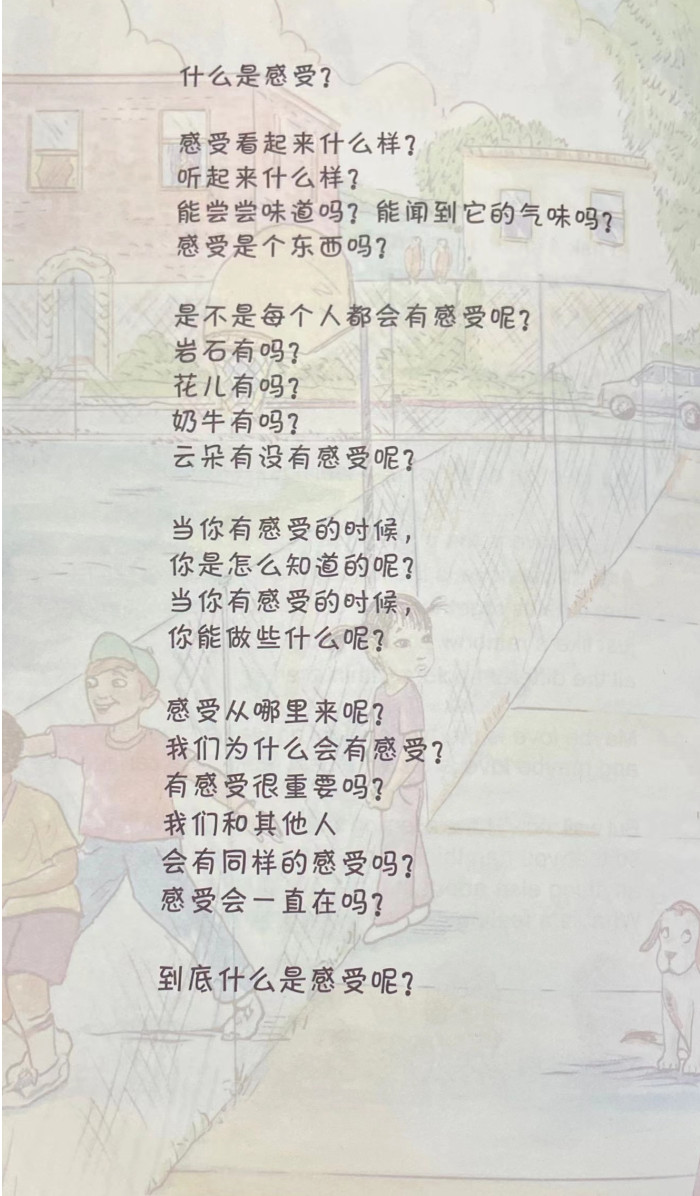 什么是感受？
感受看起来什么样？
听起来什么样？
能尝尝味道吗？能闻到它的气味吗？
感受是个东西吗？
是不是每个人都会有感受呢？
岩石有吗？
花儿有吗？
奶牛有吗？
云朵有没有感受呢？
当你有感受的时候，
你是怎么知道的呢？
当你有感受的时候，
你能做些什么呢？
感受从哪里来呢？
我们为什么会有感受？
有感受很重要吗？
我们和其他人
会有同样的感受吗？
感受会一直在吗？
到底什么是感受呢？